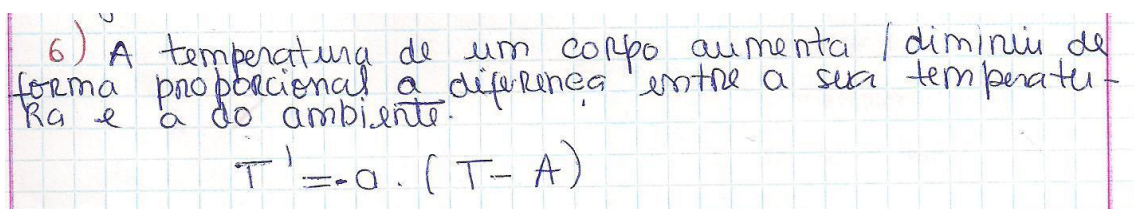 6) A temperatura de um corpo aumenta / diminui de
forma proporcional a diferença entre a sua temperatu-
ra e a do ambiente.
T' = -a . (T - A)